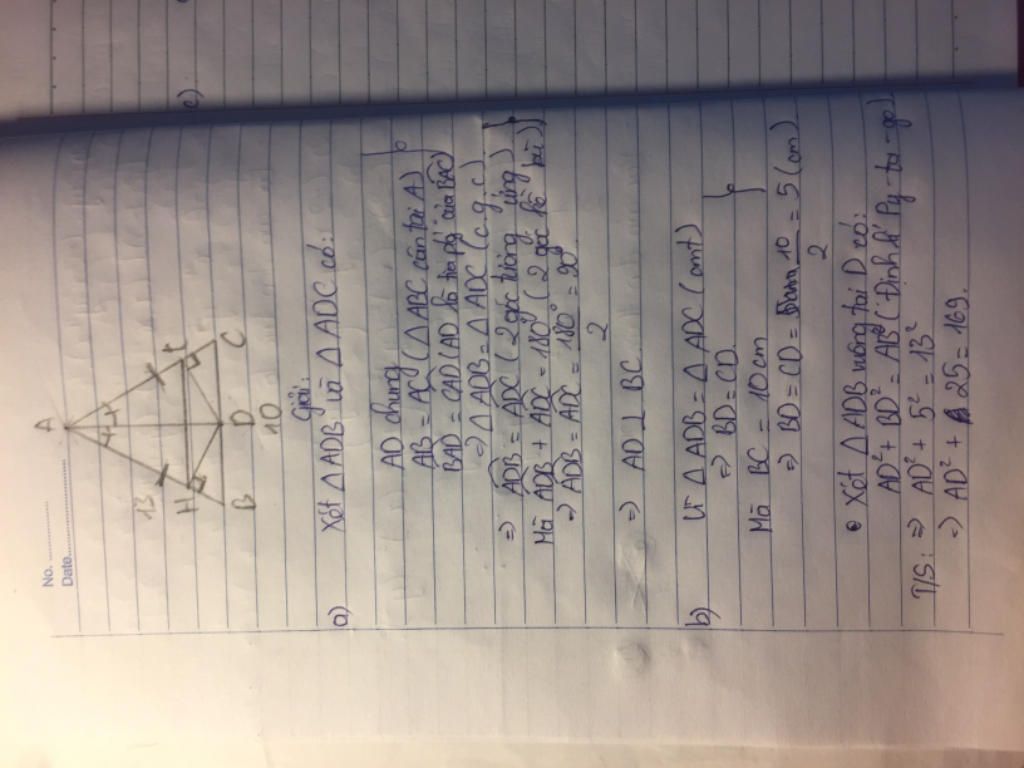 No. ............
Date............
A
13
H
K
B
D
C
10
c)
Giải:
a) Xét △ ADB và △ ADC có:
AD chung
AB = AC (△ ABC cân tại A)
BAD = CAD (AD là tia p/g của BAC)
=> △ ADB = △ ADC (c.g.c)
=> ADB = ADC (2 góc tương ứng)
Mà ADB + ADC = 180° (2 góc kề bù)
=> ADB = ADC = 180° = 90°
2
=> AD ⊥ BC
b) Vì △ ADB = △ ADC (cmt)
=> BD = CD
Mà BC = 10cm
=> BD = CD = 10 = 5 (cm)
2
• Xét △ ADB vuông tại D có:
AD² + BD² = AB² (Định lí Py-ta-go)
T/S: => AD² + 5² = 13²
=> AD² + 25 = 169.